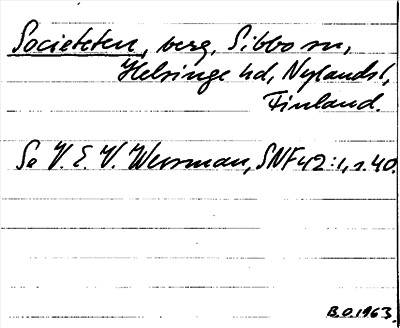 Societeten, berg, Sibbo sn,
Helsinge hd, Nylands l,
Finland.
Se V. E. V. Wessman, SNF 42:1, s. 40.
B.O. 1963.